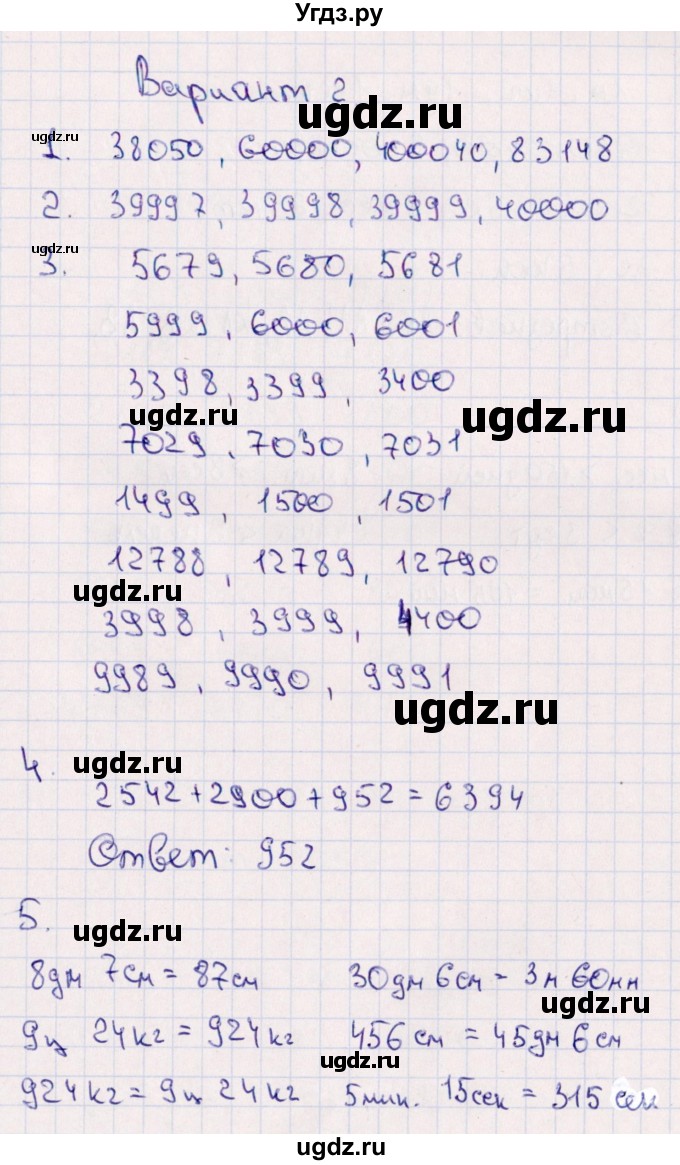 Угдз.ру
Вариант 2
ugdz.ru
ugdz.ru
1. 38050, 60000, 400040, 83148
2. 39997, 39998, 39999, 40000
ugdz.ru
3. 5679, 5680, 5681
5999, 6000, 6001
3398, 3399, 3400
ugdz.ru
ugdz.ru
7029, 7030, 7031
1499, 1500, 1501
12788, 12789, 12790
ugdz.ru
3998, 3999, 4400
9989, 9990, 9991
ugdz.ru
4.
ugdz.ru
2542+2900+952=6394
Ответ: 952
5.
ugdz.ru
8дм 7см = 87см 30дм 6см = 3м 60мм
ugdz.ru
9ц 24кг = 924кг 456см = 45дм 6см
ugdz.ru
924кг = 9ц 24кг 5мин. 15сек = 315сек
ugdz.ru